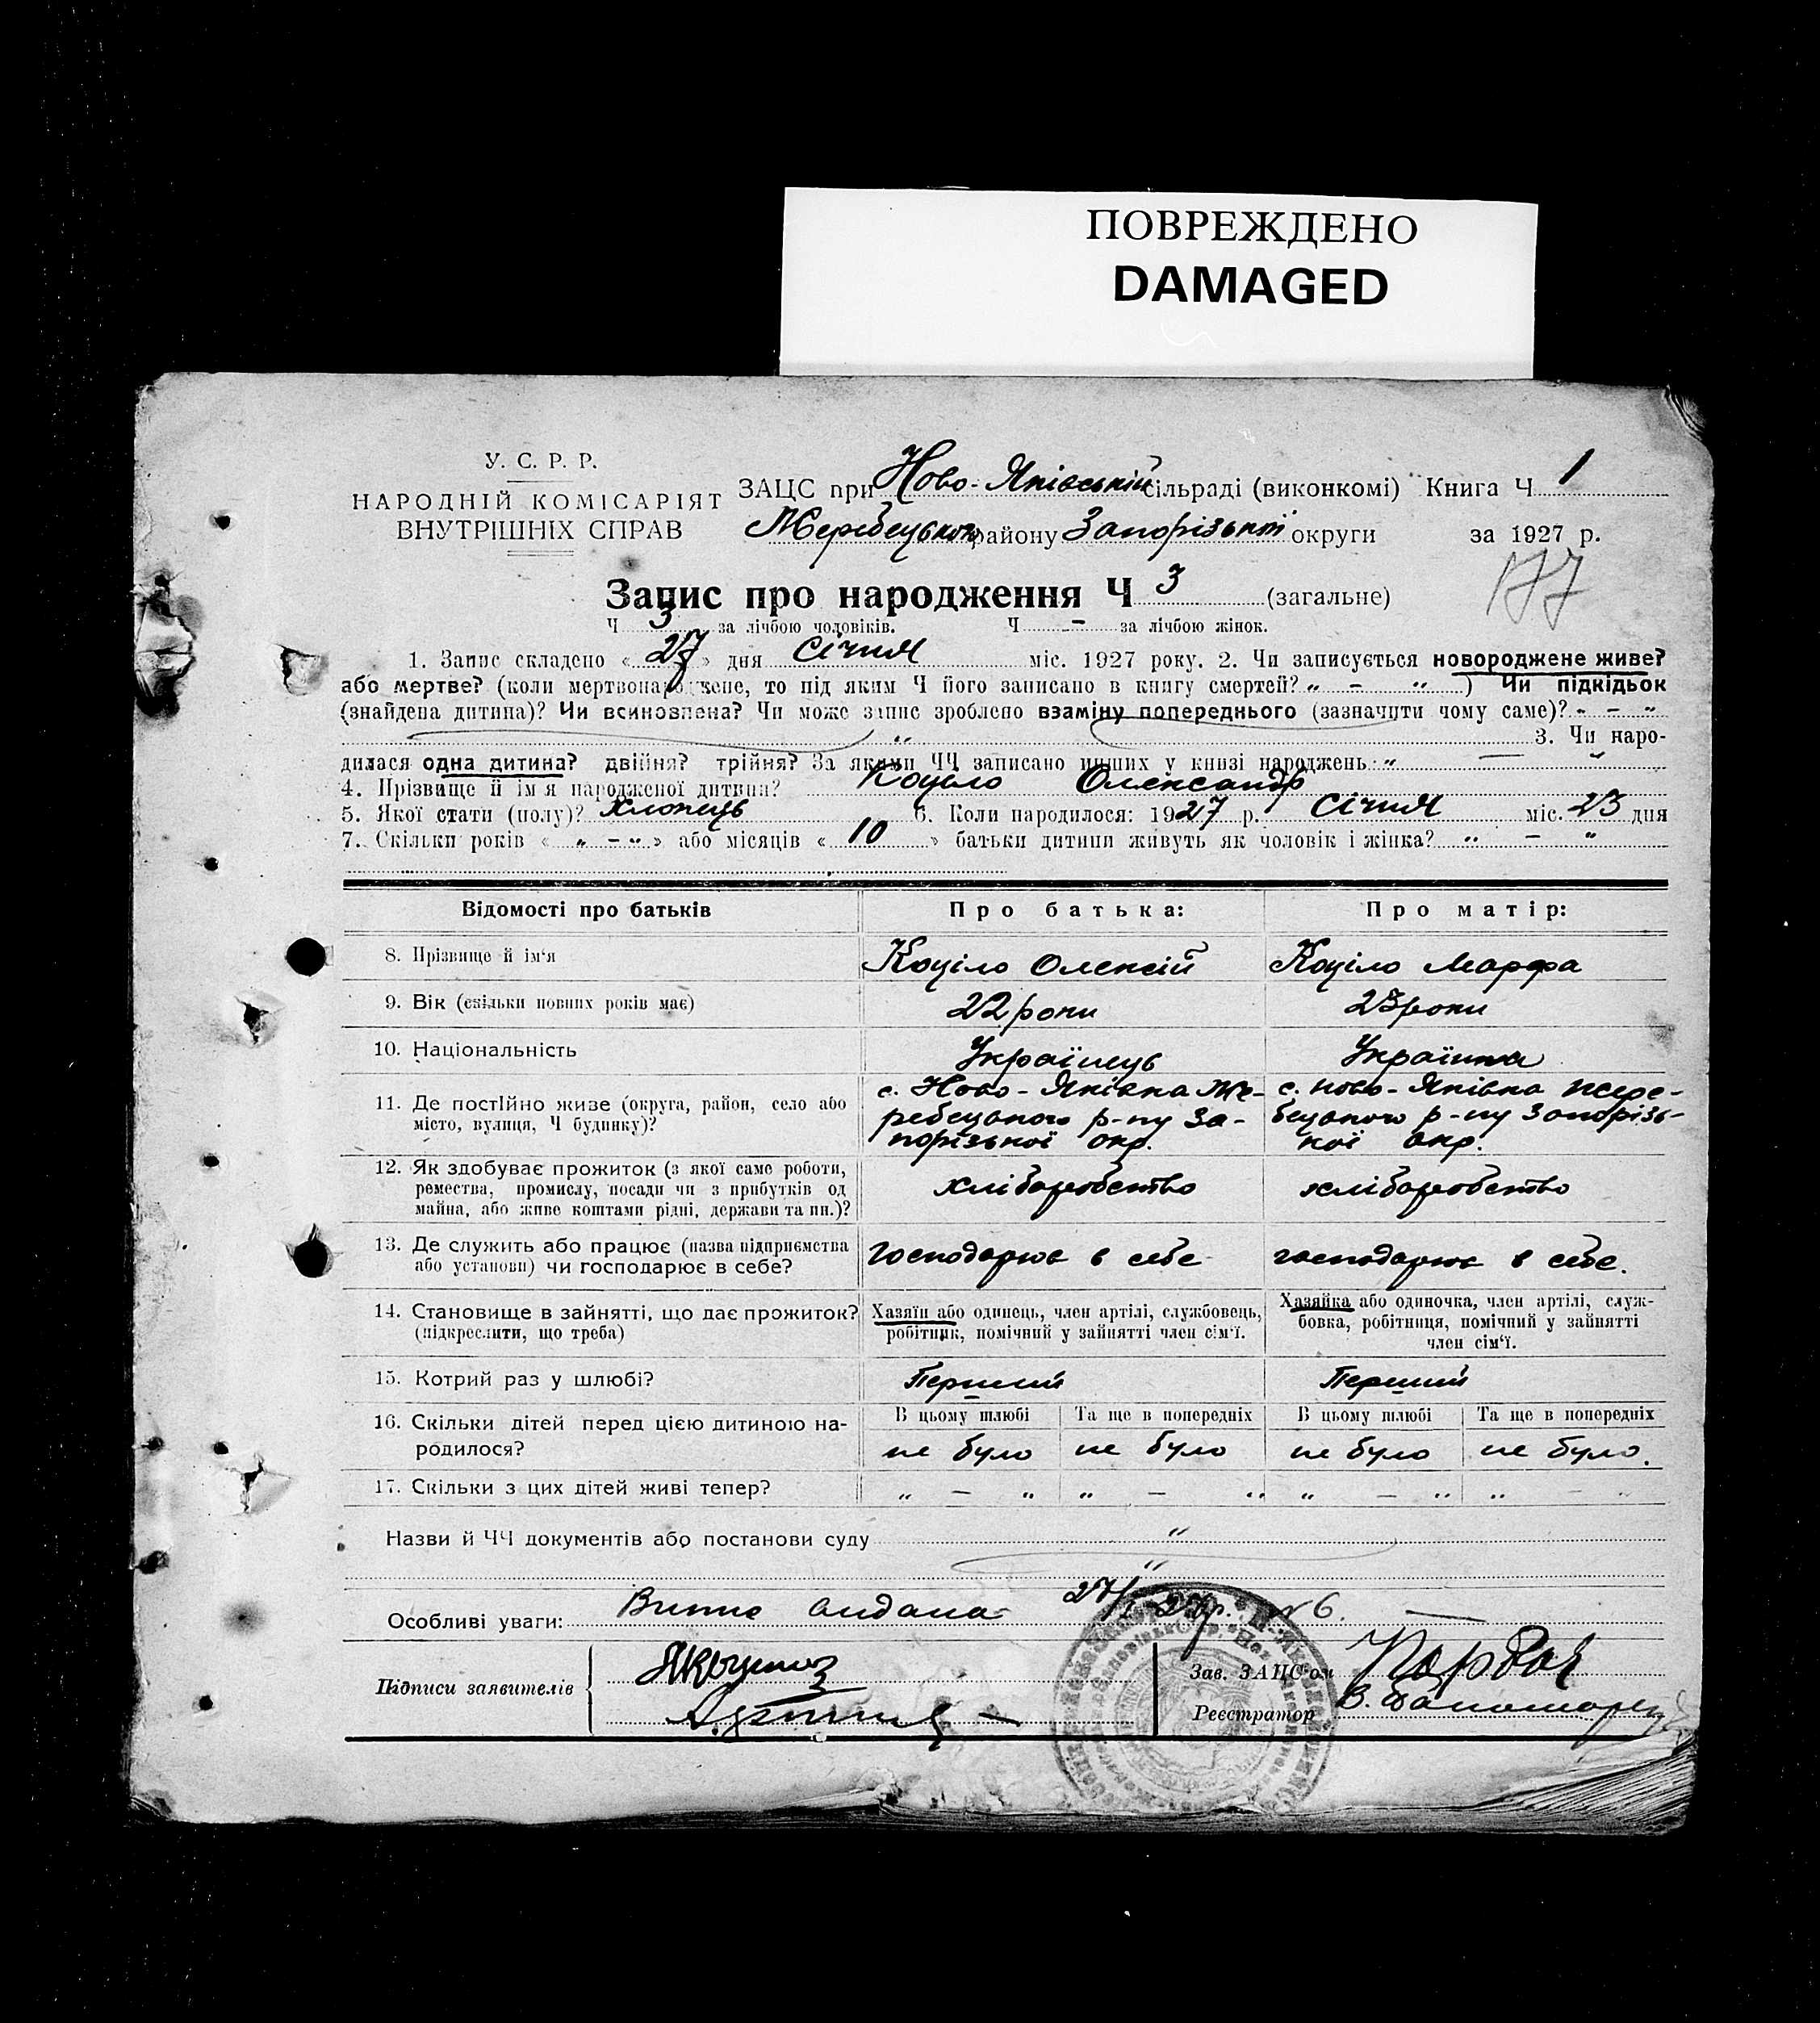 ПОВРЕЖДЕНО
DAMAGED
У. С. Р. Р.
НАРОДНІЙ КОМІСАРІЯТ
ВНУТРІШНІХ СПРАВ
ЗАЦС при Ново-Яківській сільраді (виконкомі) Книга Ч 1
Жеребецького району Запорізької округи за 1927 р.
177
Запис про народження Ч 3 (загальне)
Ч 3 за лічбою чоловіків. Ч - за лічбою жінок.
1. Запис складено « 27 » дня Січня міс. 1927 року. 2. Чи записується новороджене живе?
або мертве? (коли мертвонароджене, то під яким Ч його записано в книгу смертей? „ – “ ) Чи підкідьок
(знайдена дитина)? Чи всиновлена? Чи може запис зроблено взаміну попереднього (зазначити чому саме)? „ – “
“ 3. Чи наро-
дилася одна дитина? двійня? трійня? За якими ЧЧ записано инших у книзі народжень „ — “
4. Прізвище й ім'я народженої дитини? Коціло Олександр
5. Якої стати (полу)? хлопець 6. Коли народилося: 1927 р. Січня міс. 23 дня
7. Скільки років « „ – “ » або місяців « 10 » батьки дитини живуть як чоловік і жінка? „ – “
Відомості про батьків Про батька: Про матір:
8. Прізвище й ім'я Коціло Олексій Коціло Марфа
9. Вік (скільки повних років має) 22 роки 23 роки
10. Національність Українець Українка
11. Де постійно живе (округа, район, село або місто, вулиця, Ч будинку)?
с. Ново-Яківка Же-
ребецького р-ну За-
порізької окр.
с. Ново-Яківка Жере-
бецького р-ну Запорізь-
кої окр.
12. Як здобуває прожиток (з якої саме роботи,
ремества, промислу, посади чи з прибутків од
майна, або живе коштами рідні, держави та ин.)?
хліборобство хліборобство
13. Де служить або працює (назва підприємства
або установи) чи господарює в себе?
господарює в себе господарює в себе.
14. Становище в зайнятті, що дає прожиток?
(підкреслити, що треба)
Хазяїн або одинець, член артілі, службовець,
робітник, помічний у зайнятті член сім'ї.
Хазяйка або одиночка, член артілі, служ-
бовка, робітниця, помічний у зайнятті
член сім'ї.
15. Котрий раз у шлюбі? Перший Перший
16. Скільки дітей перед цією дитиною на-
родилося?
В цьому шлюбі Та ще в попередніх В цьому шлюбі Та ще в попередніх
не було не було не було не було.
17. Скільки з цих дітей живі тепер? „ – “ „ – “ „ – “ „ – “
Назви й ЧЧ документів або постанови суду “
“
Особливі уваги: Випис видана 27/I 27р. №6. —
Підписи заявителів
Зав. ЗАЦС'ом
Реєстратор В.